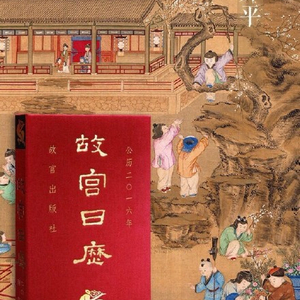 平
公历二〇一六年
故宫日历
故宫出版社